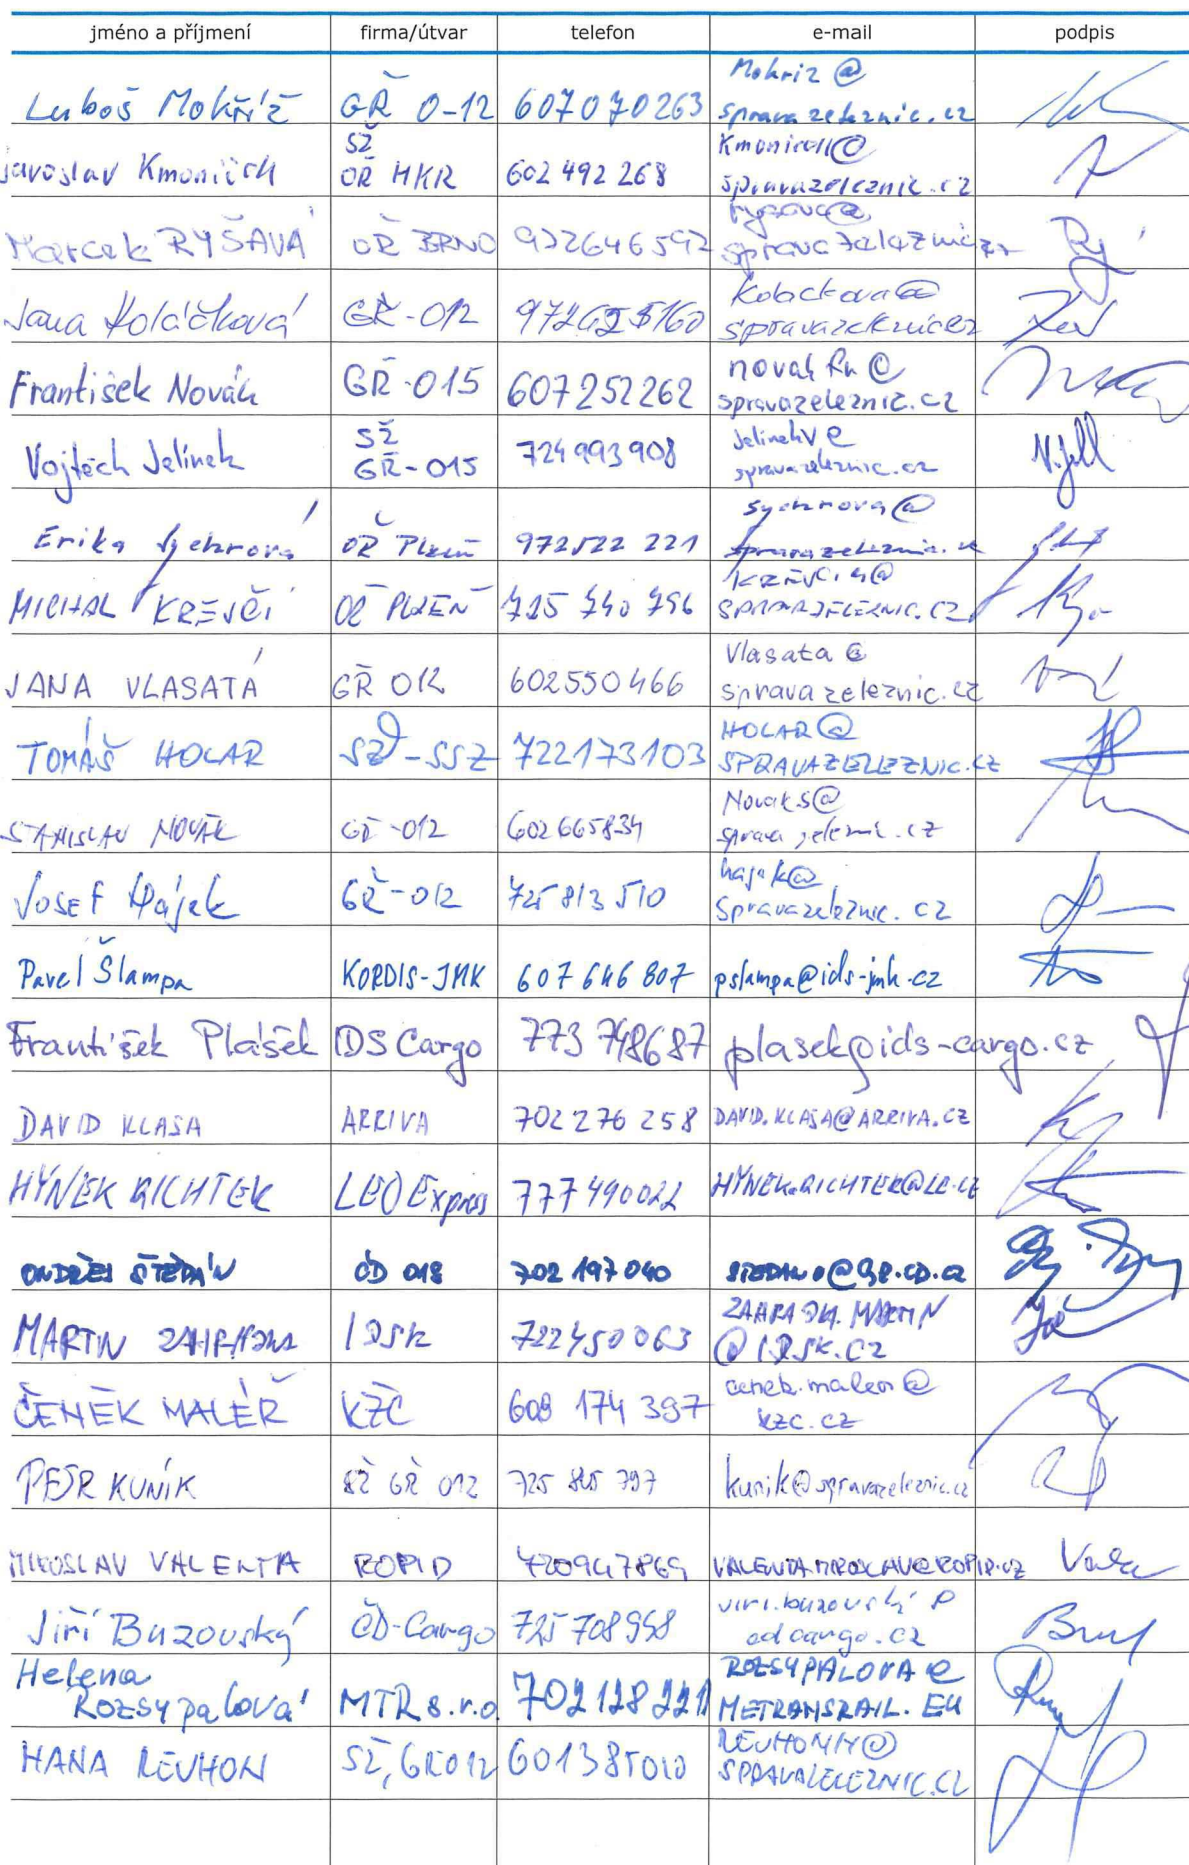 jméno a příjmení firma/útvar telefon e-mail podpis
Luboš Mokříž GŘ O-12 607070263 Mokriz@
spravazeleznic.cz
Jaroslav Kmoníček SŽ
OŘ HKR 602 492 268 Kmonicek@
spravazeleznic.cz
Marcela RYŠAVÁ OŘ BRNO 972646592 rysava@
spravazeleznic.cz
Jana Koláčková GŘ-012 kolackova@
spravazeleznic.cz
František Novák GŘ-015 607252262
spravazeleznic.cz
Vojtěch Jelínek SŽ
GŘ-015 724993908 JelinekV@
spravazeleznic.cz
Erika Sychrová OŘ Plzeň 972522 221 sychrova@
spravazeleznic.cz
MICHAL KREJČÍ OŘ PLZEŇ 725 740 796
SPRAVAZELEZNIC.CZ
JANA VLASATÁ GŘ 012 602550466 Vlasata@
spravazeleznic.cz
TOMÁŠ HOLAR SŽ-SSZ 722173103 HOLAR@
SPRAVAZELEZNIC.CZ
STANISLAV NOVÁK GŘ-012 602665834 NovakS@
spravazeleznic.cz
JOSEF Hájek GŘ-012 725 813 510 hajek@
spravazeleznic.cz
Pavel Šlampa KORDIS-JMK 607 646 807 pslampa@ids-jmk.cz
František Plášek IDS Cargo 773 748687 plasek@ids-cargo.cz
DAVID KLASA ARRIVA 702 276 258 DAVID.KLASA@ARRIVA.CZ
HYNEK RICHTEK LEO Express 777490022 HYNEK.RICHTEK@LE.CZ
ONDŘEJ ŠTĚPÁN ČD 018 702 197 040
MARTIN ZAHRÁDKA IDSK 722450063 ZAHRADKA.MARTIN
@IDSK.CZ
ČENĚK MALÉŘ KŽC 608 174 397 cenek.maler@
kzc.cz
PETR KUNÍK SŽ GŘ 012 kunik@spravazeleznic.cz
MIROSLAV VALENTA ROPID 720947869 VALENTA.MIROSLAV@ROPID.CZ
Jiří Buzovský ČD-Cargo 725 708 958 jiri.buzovský@
cdcargo.cz
Helena
Rozsypalová MTR s.r.o. 702128221 ROZSYPALOVA@
METRANSRAIL.EU
HANA SŽ, GŘ012 601385010
SPRAVAZELEZNIC.CZ